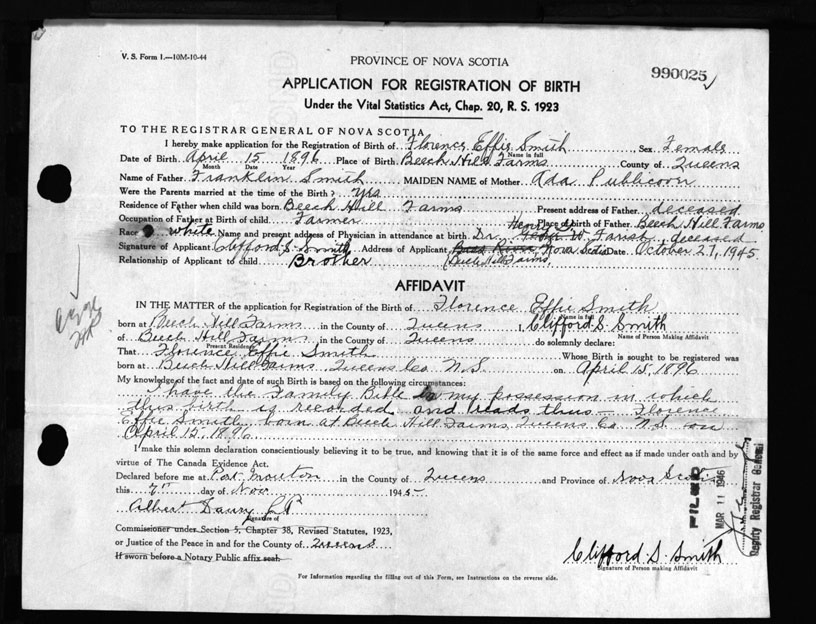 V. S. Form 1.—10M-10-44
PROVINCE OF NOVA SCOTIA
990025
APPLICATION FOR REGISTRATION OF BIRTH
Under the Vital Statistics Act, Chap. 20, R. S. 1923
TO THE REGISTRAR GENERAL OF NOVA SCOTIA
I hereby make application for the Registration of Birth of Florence Effie Smith Sex Female
Name in full
Date of Birth April 15 1896 Place of Birth Beech Hill Farms County of Queens
Month Date Year
Name of Father Franklin Smith MAIDEN NAME of Mother Ada Publicover
Were the Parents married at the time of the Birth? yes
Residence of Father when child was born Beech Hill Farms Present address of Father deceased
Occupation of Father at Birth of child Farmer Place of Birth of Father Beech Hill Farms
Race white Name and present address of Physician in attendance at birth Dr. Farish, deceased
Signature of Applicant Clifford S. Smith Address of Applicant Nova Scotia Date October 27, 1945.
(Beech Hill Farms)
Relationship of Applicant to child Brother
AFFIDAVIT
IN THE MATTER of the application for Registration of the Birth of Florence Effie Smith
Name in full
born at Beech Hill Farms in the County of Queens I, Clifford S. Smith
Name of Person Making Affidavit
of Beech Hill Farms, in the County of Queens do solemnly declare:
Present Residence
That Florence Effie Smith Whose Birth is sought to be registered was
born at Beech Hill Farms Queens Co. N.S. on April 15, 1896
My knowledge of the fact and date of such Birth is based on the following circumstances:
I have the Family Bible in my possession in which
this birth is recorded and reads thus — Florence
Effie Smith born at Beech Hill Farms, Queens Co N.S. on
April 15, 1896
I make this solemn declaration conscientiously believing it to be true, and knowing that it is of the same force and effect as if made under oath and by
virtue of The Canada Evidence Act.
Declared before me at in the County of Queens and Province of Nova Scotia
this day of Nov 1945
Albert
Signature of
Commissioner under Section 5, Chapter 38, Revised Statutes, 1923,
or Justice of the Peace in and for the County of Queens
If sworn before a Notary Public affix seal.
Clifford S. Smith
Signature of Person making Affidavit
FILED
MAR 11 1946
Deputy Registrar General
For Information regarding the filling out of this Form, see Instructions on the reverse side.